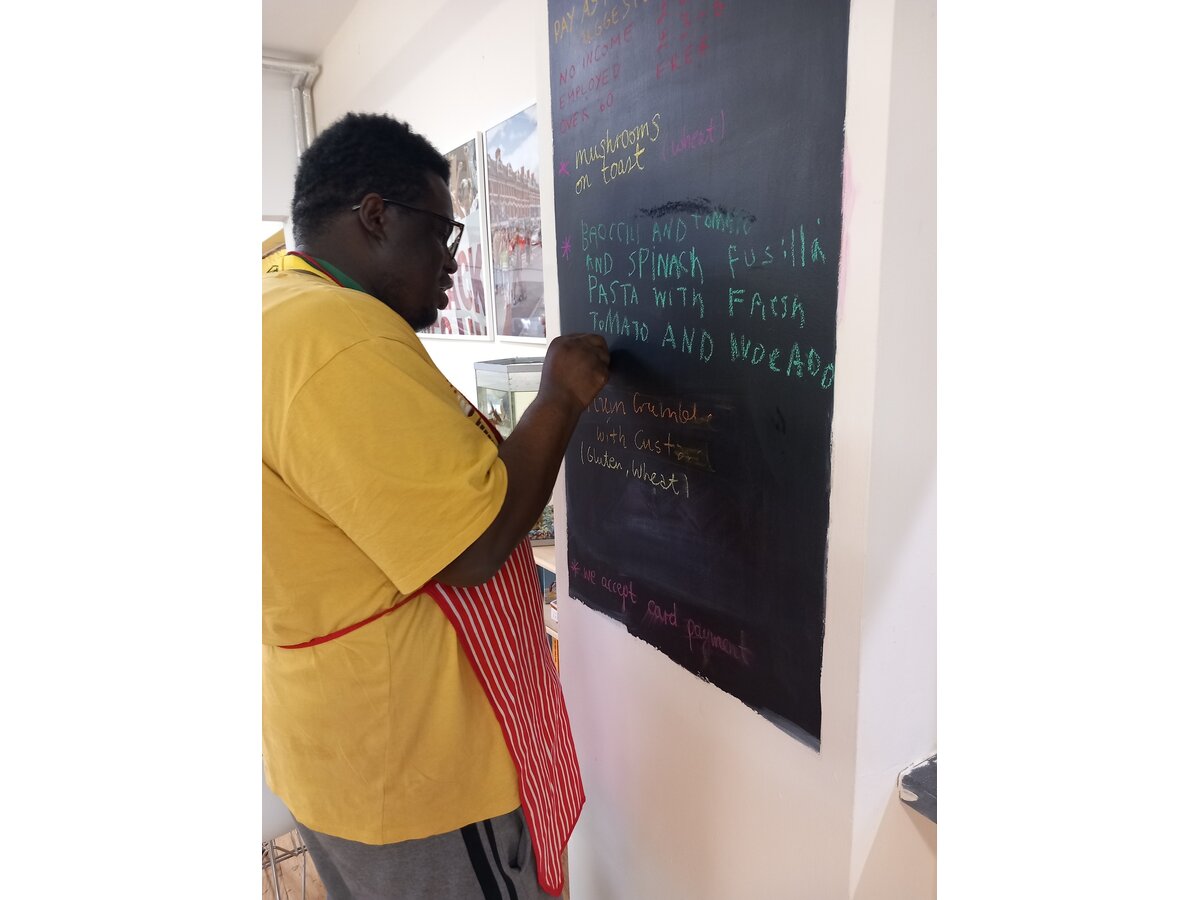 PAY AS
SUGGEST
NO INCOME
EMPLOYED
OVER 60 FREE
* mushrooms (wheat)
on toast
* BROCCILI AND TOMATO
AND SPINACH FUSILLI
PASTA WITH FRESH
TOMATO AND AVOCADO
Crumble
with Custard
(Gluten, Wheat)
* we accept card payment